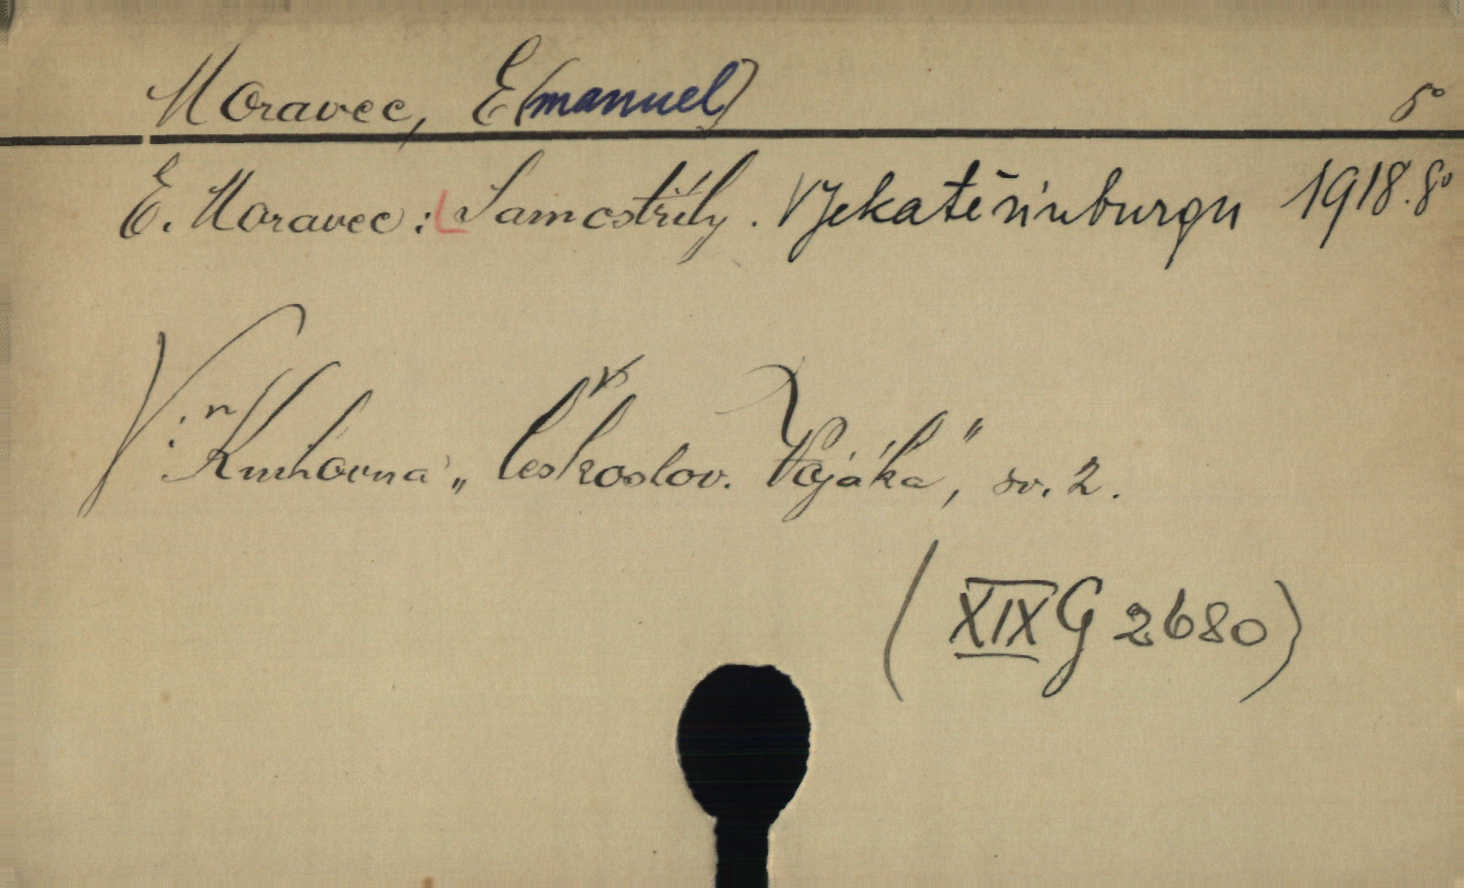 Moravec, E(manuel) 5°
E. Moravec: Samostřily. V Jekatěrinburgu 1918. 8°
V: Knihovna „Českoslov. Vojáka", sv. 2.
(XIX G 2680)